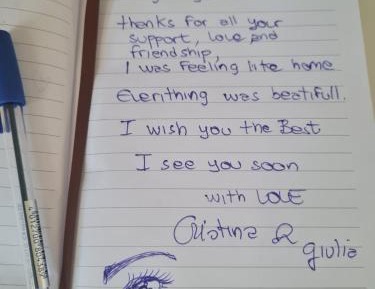 thenks for all your
support, love and
friendship,
I was feeling like home
Everithing was beatifull.
I wish you the Best
I see you soon
with LOVE
Cristina &
giulia